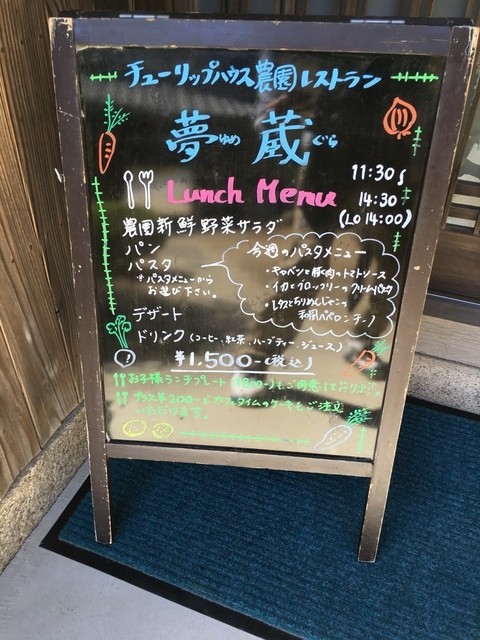 チューリップハウス農園レストラン
夢ゆめ 蔵ぐら
Lunch Menu
11:30〜
14:30
(LO 14:00)
農園新鮮野菜サラダ
パン
パスタ
※パスタメニューから
お選び下さい。
今週のパスタメニュー
・キャベツと豚肉のトマトソース
・イカとブロッコリーのクリームパスタ
・レタスとちりめんじゃこの
和風ペペロンチーノ
デザート
ドリンク (コーヒー、紅茶、ハーブティー、ジュース)
¥1,500-(税込)
お子様ランチプレート もご用意しております。
プラス¥200-でカフェタイムのケーキもご注文
いただけます。